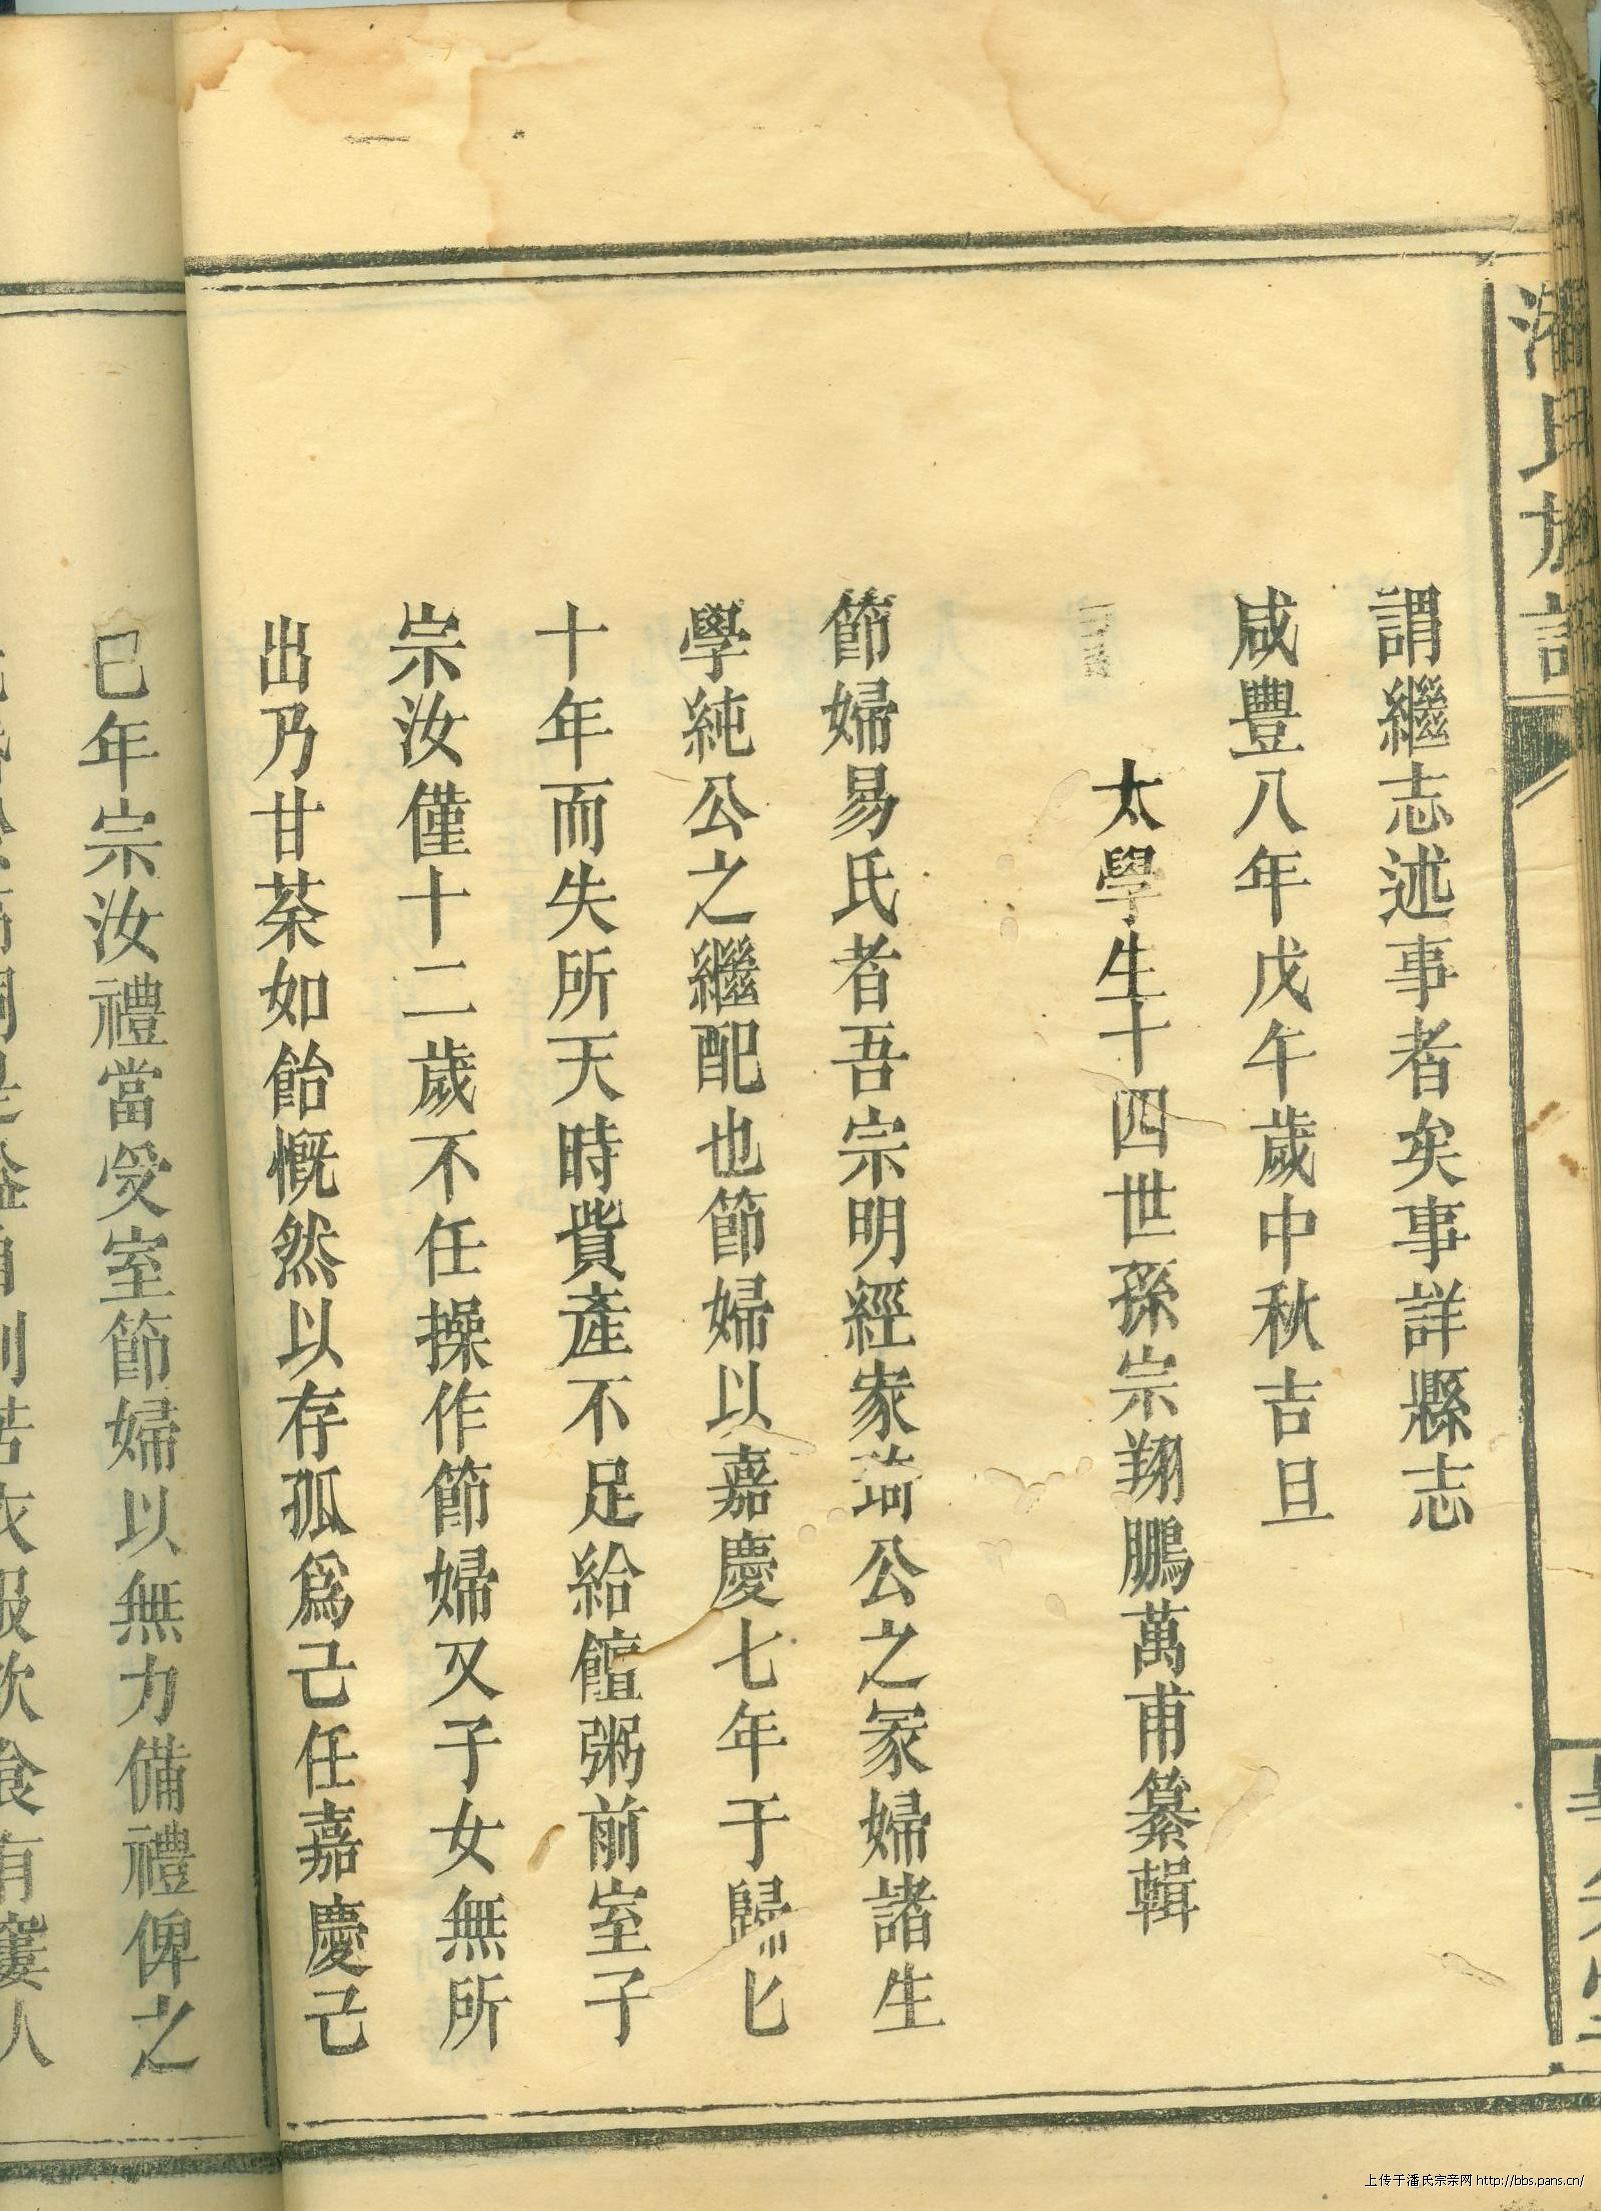 謂繼志述事者矣事詳縣志
咸豐八年戊午歲中秋吉旦
太學生十四世孫宗翔鵬萬甫纂輯
節婦易氏者吾宗明經家琦公之冢婦諸生
學純公之繼配也節婦以嘉慶七年于歸匕
十年而失所天時貲產不足給饘粥前室子
宗汝僅十二歲不任操作節婦又子女無所
出乃甘荼如飴慨然以存孤爲己任嘉慶己
巳年宗汝禮當受室節婦以無力備禮俾之
衣服飲食有窶人
潘氏族譜
上传于潘氏宗亲网 http://bbs.pans.cn/